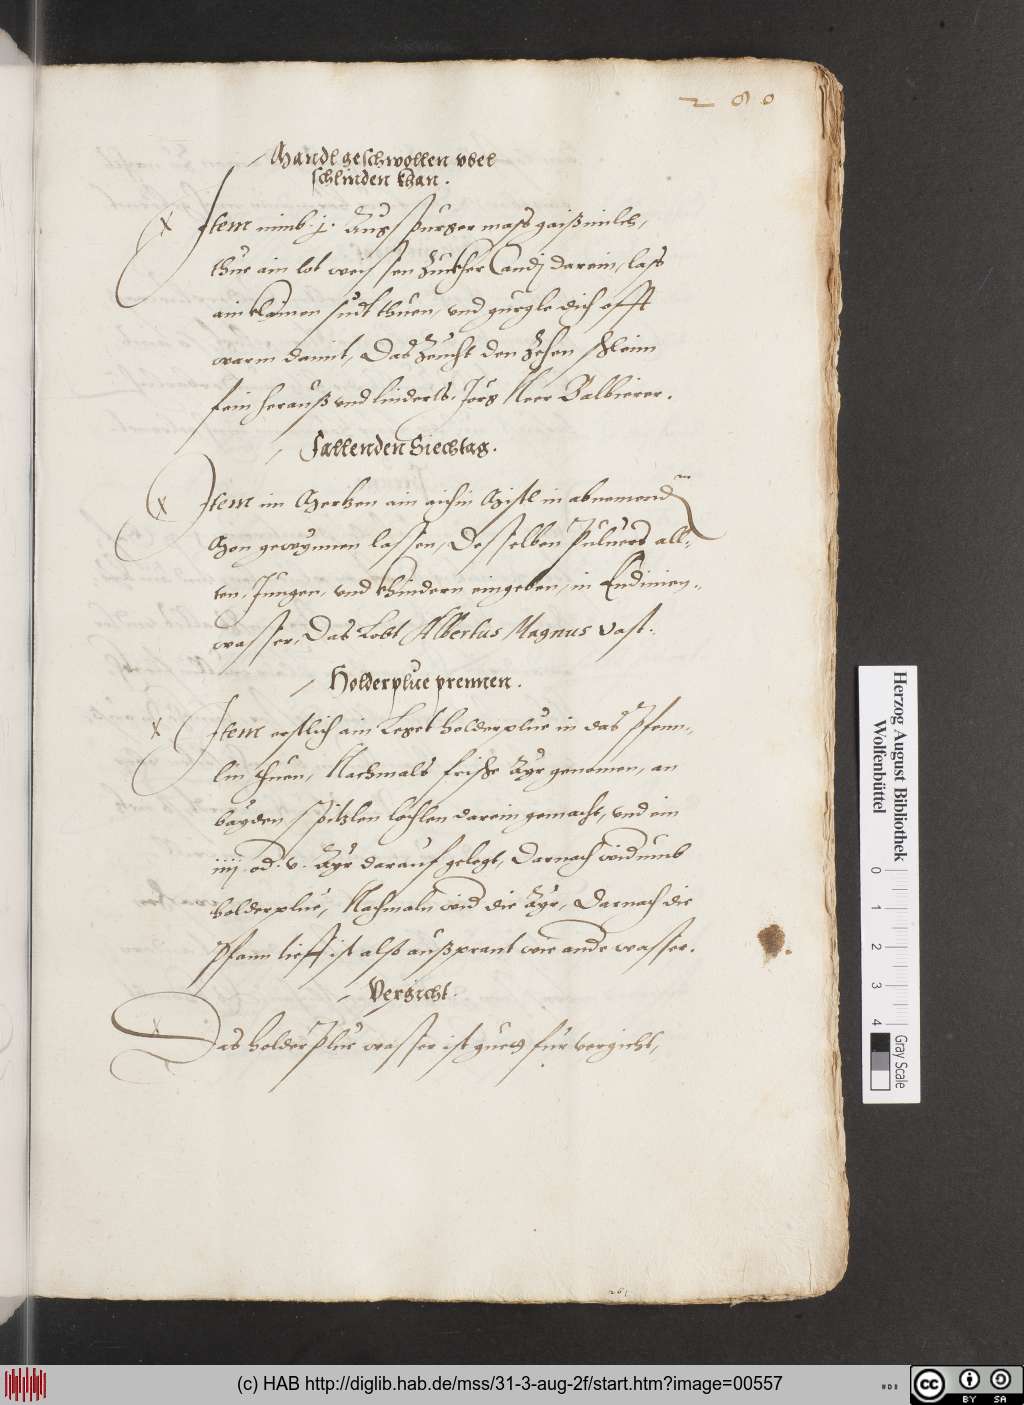 280
Mandl geschwollen vbel
schlinden khan.
Item nimb .j. Augspurger mass gaißmilch,
thue ain lot weissen Zuckher Candj darein, lass
ain klainen sudt thuen, vnd gurgle dich offt
warm damit, Das Zeucht den Zehen schleim
fein herauß vnd linderts. Jorg Beer Balbierer.
Fallenden Siechtag.
Item im Mertzen ain aichin Mistl in abnemend
Mon gewynnen lassen, Desselben Puluers all-
ten, Jungen, vnd khindern eingeben, in
wasser, Das Lobt Albertus Magnus vast.
Holderplüe prennen.
Item erstlich ain Leget holderplüe in das Pfenn-
lin thuen, Nachmals frische Ayr genomen, an
bayden spitzlen lochlen darein gemacht, vnd ein
iiij. od. v. Ayr darauf gelegt, Darnach widumb
holderplüe, Nachmaln wid die Ayr, Darnach die
Pfann tieff ist also außprant wie ande wasser.
Vergicht.
Das holderplüe wasser ist guet für vergicht,
Herzog August Bibliothek
Wolfenbüttel
0 1 2 3 4
Gray Scale
(c) HAB http://diglib.hab.de/mss/31-3-aug-2f/start.htm?image=00557
cc BY SA